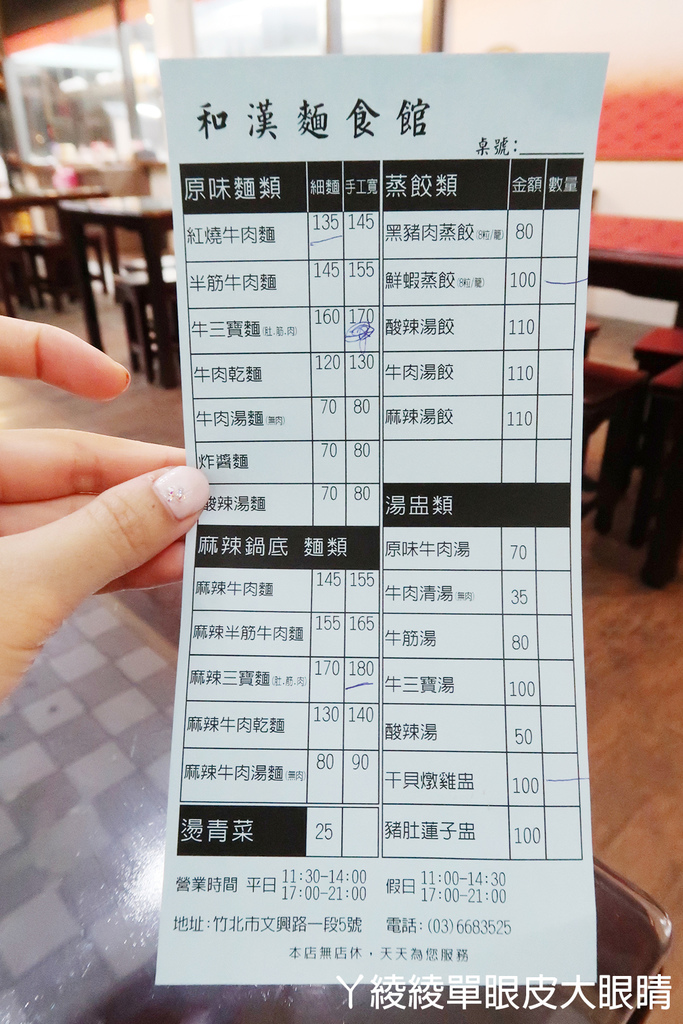 和漢麵食館
桌號:
原味麵類 細麵 手工寬
紅燒牛肉麵 135 145
半筋牛肉麵 145 155
牛三寶麵(肚.筋.肉) 160 170
牛肉乾麵 120 130
牛肉湯麵(無肉) 70 80
炸醬麵 70 80
酸辣湯麵 70 80
麻辣鍋底 麵類
麻辣牛肉麵 145 155
麻辣半筋牛肉麵 155 165
麻辣三寶麵(肚.筋.肉) 170 180
麻辣牛肉乾麵 130 140
麻辣牛肉湯麵(無肉) 80 90
燙青菜 25
蒸餃類 金額 數量
黑豬肉蒸餃(8粒/籠) 80
鮮蝦蒸餃(8粒/籠) 100
酸辣湯餃 110
牛肉湯餃 110
麻辣湯餃 110
湯盅類
原味牛肉湯 70
牛肉清湯(無肉) 35
牛筋湯 80
牛三寶湯 100
酸辣湯 50
干貝燉雞盅 100
豬肚蓮子盅 100
營業時間 平日 11:30-14:00 17:00-21:00 假日 11:00-14:30 17:00-21:00
地址:竹北市文興路一段5號 電話:(03)6683525
本店無店休·天天為您服務
ㄚ綾綾單眼皮大眼睛